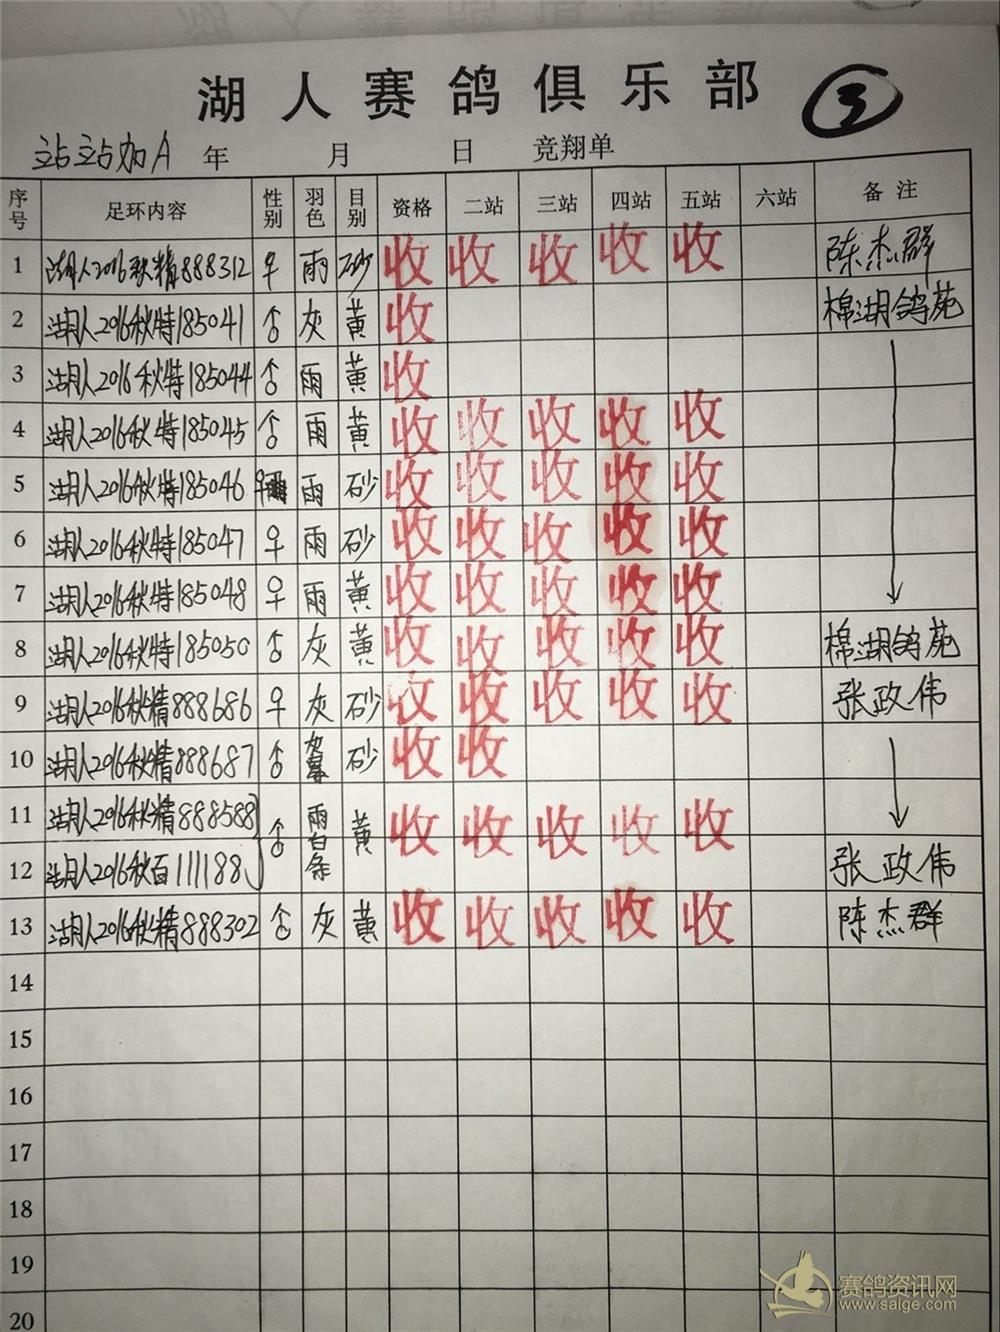 湖人赛鸽俱乐部
③
站站加A 年 月 日 竞翔单
序号 足环内容 性别 羽色 目别 资格 二站 三站 四站 五站 六站 备注
1 湖人2016秋精888312 ♀ 雨 砂 收 收 收 收 收 陈杰群
2 湖人2016秋特185041 ♂ 灰 黄 收 棉湖鸽苑
3 湖人2016秋特185044 ♂ 雨 黄 收
4 湖人2016秋特185045 ♂ 雨 黄 收 收 收 收 收
5 湖人2016秋特185046 ♀ 雨 砂 收 收 收 收 收
6 湖人2016秋特185047 ♀ 雨 砂 收 收 收 收 收
7 湖人2016秋特185048 ♀ 雨 黄 收 收 收 收 收
8 湖人2016秋特185050 ♂ 灰 黄 收 收 收 收 收 棉湖鸽苑
9 湖人2016秋精888686 ♀ 灰 砂 收 收 收 收 收 张政伟
10 湖人2016秋精888687 ♂ 砂 收 收
11 湖人2016秋精888588 ♂ 雨白条 黄 收 收 收 收 收
12 湖人2016秋百111188 张政伟
13 湖人2016秋精888302 ♂ 灰 黄 收 收 收 收 收 陈杰群
14
15
16
17
18
19
20
赛鸽资讯网
www.saige.com